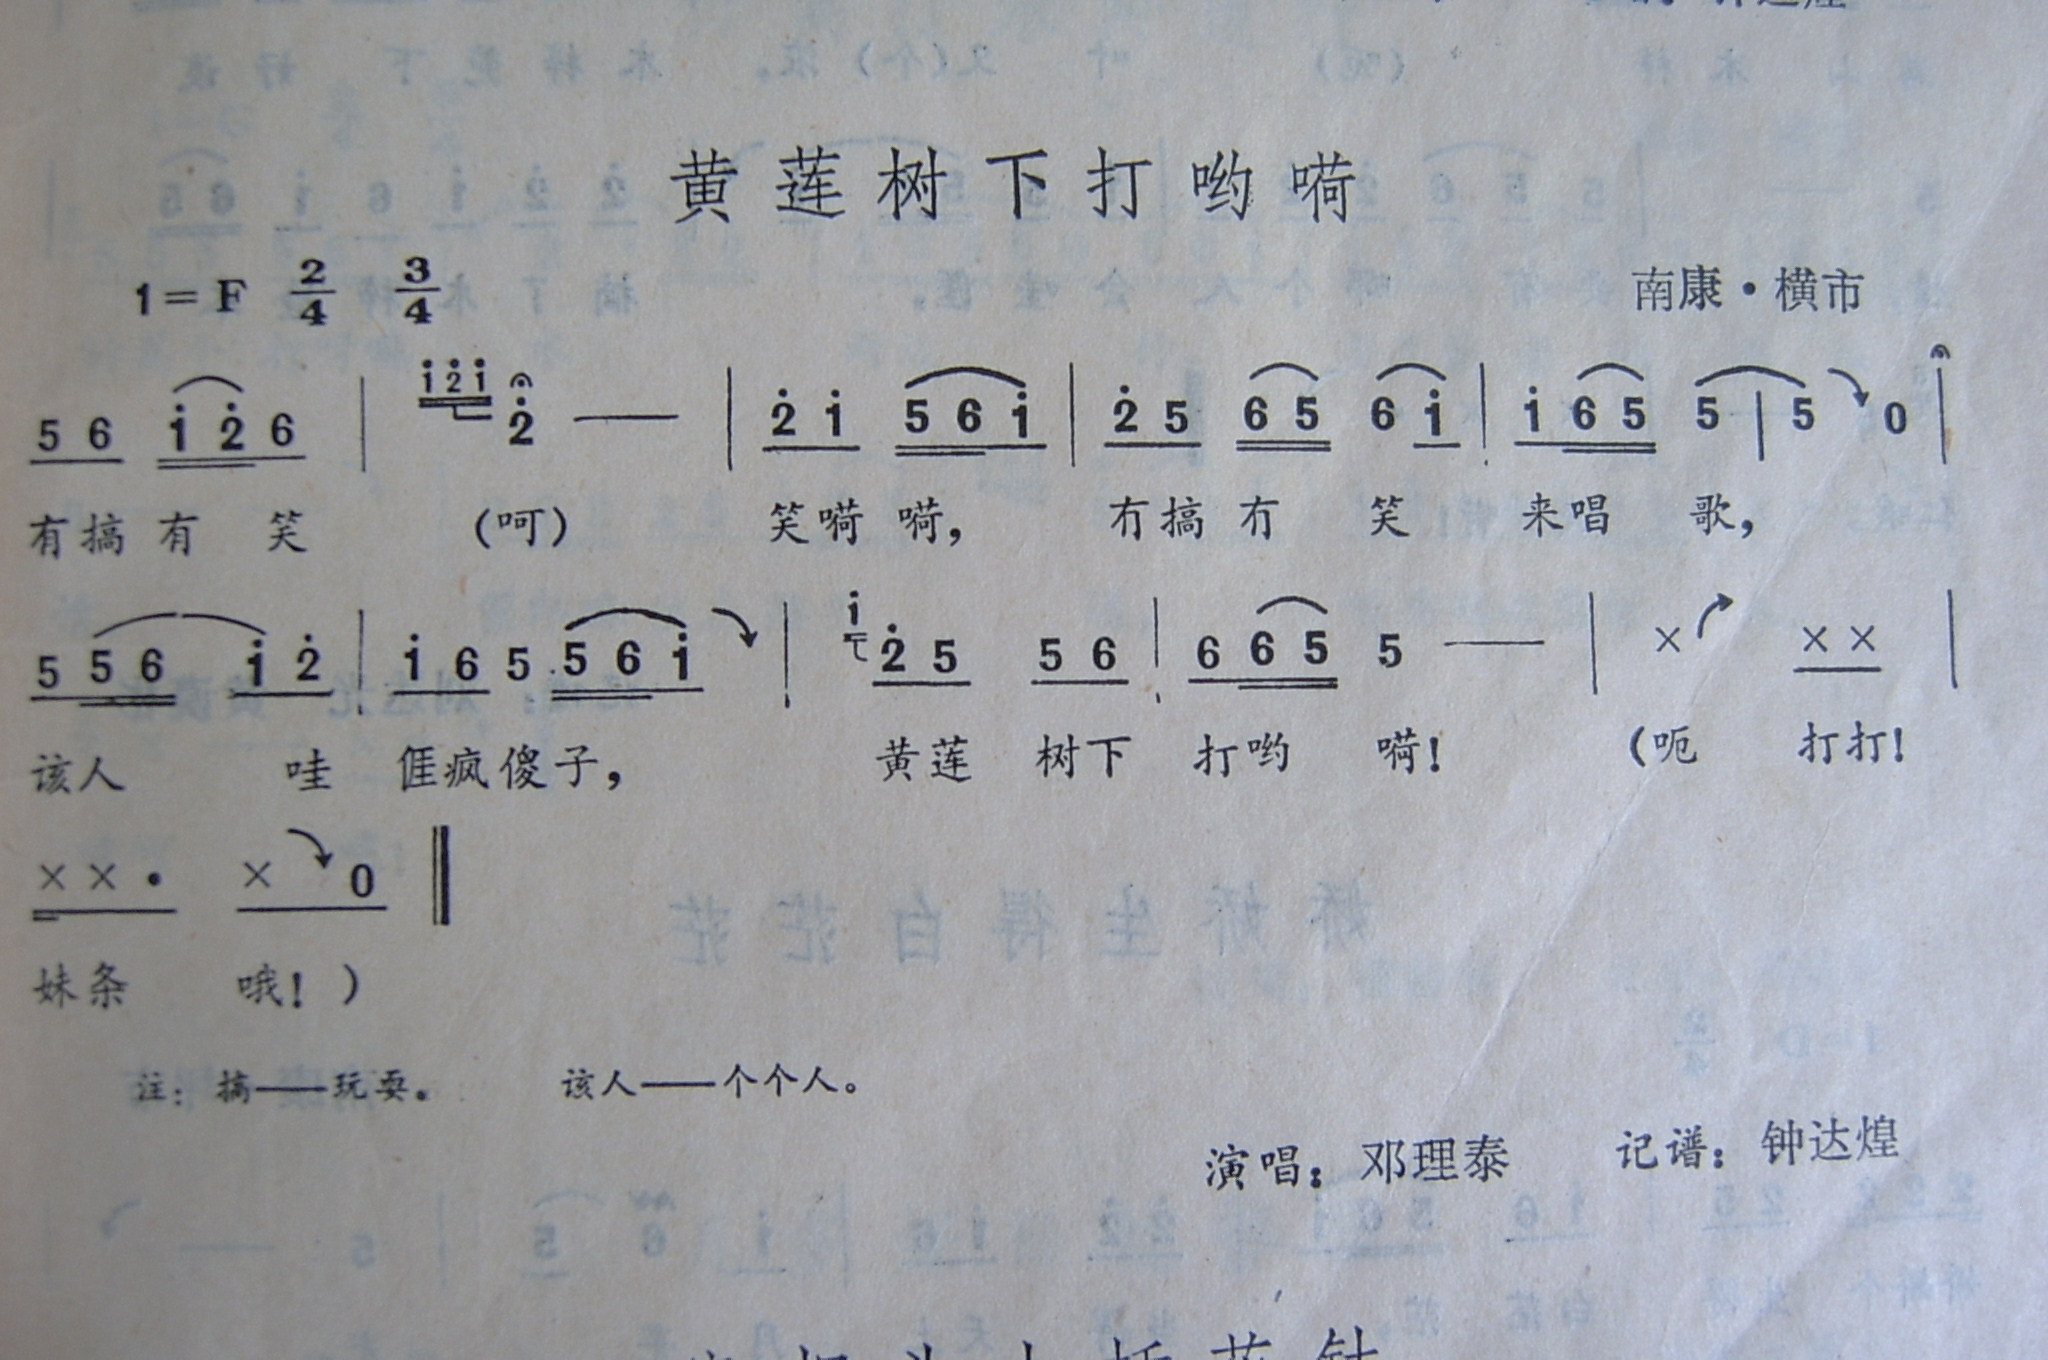 黄莲树下打哟嗬
1=F 2/4 3/4 南康·横市
5 6 i 2 6 | i2i 2 — | 2 i 5 6 i | 2 5 6 5 6 i | i 6 5 5 | 5 0 |
有搞有 笑 (呵) 笑嗬 嗬, 冇搞冇 笑 来唱 歌,
5 5 6 i 2 | i 6 5 5 6 i | i 2 5 5 6 | 6 6 5 5 — | × × × |
该人 哇 𠊎疯傻子, 黄莲 树下 打哟 嗬! (呃 打打!
× × · × 0
妹条 哦! )
注: 搞——玩耍。 该人——个个人。
演唱: 邓理泰 记谱: 钟达煌